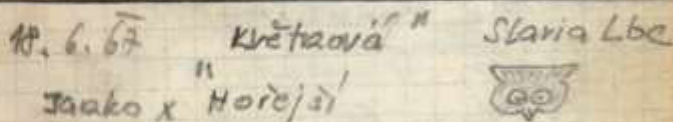 18. 6. 67 Květnová " Slavia Lbc
Jaako x "Hořejší